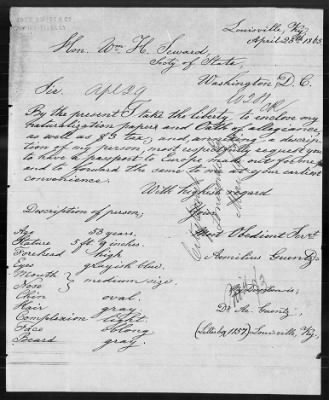 Louisville, Ky.
April 25th 1863
Hon. Wm. H. Seward,
Secty of State,
Washington D. C.
Sir
By the present I take the liberty, to inclose my
naturalization papers and Oath of allegiance,
as well as $3 tax; and, annexing a descrip-
tion of my person, most respectfully request you
to have a passport to Europe made out for me
and to forward the same to me at your earliest
convenience.
With highest regard
Yours
Most Obedient Servt
Aemilius Guentz
Description of person;
Age 53 years.
Stature 5 ft. 9 inches.
Forehead high
Eyes grayish blue.
Mouth } medium size.
Nose
Chin oval.
Hair gray.
Complexion light.
Face oblong
Beard gray.
My Direction is;
Dr. Ae. Guentz,
(Letterbox 1157) Louisville, Ky.